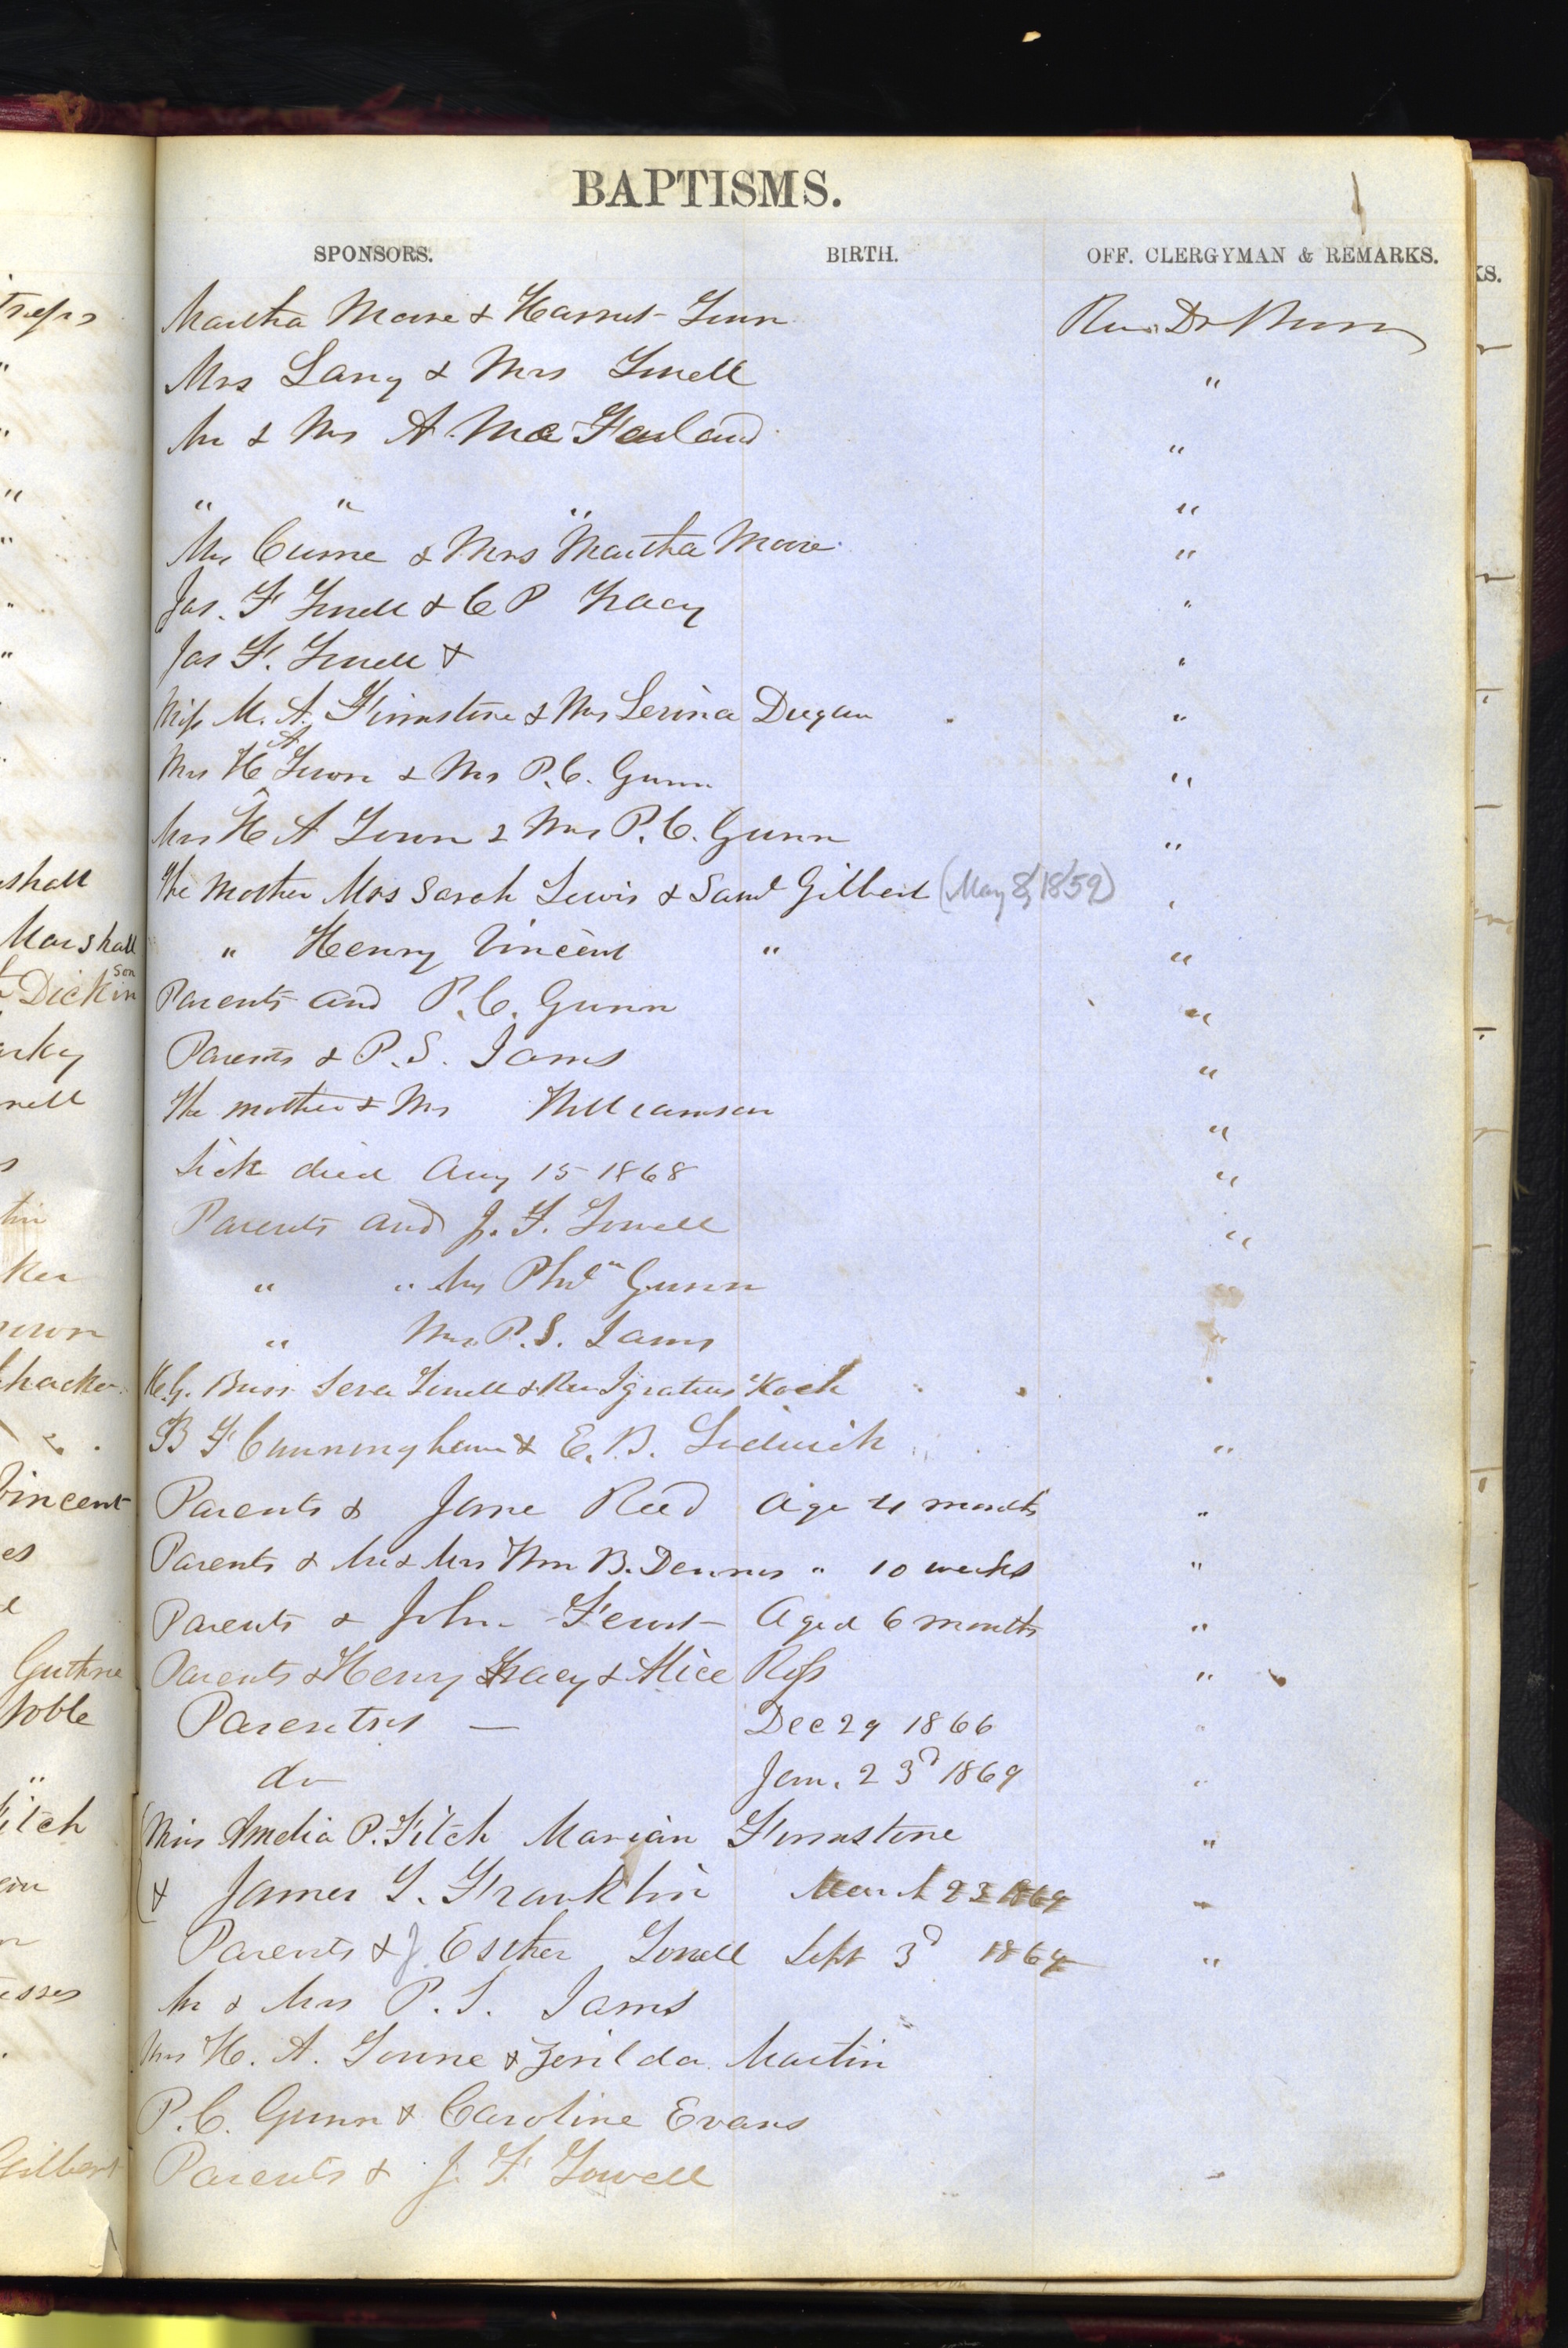 BAPTISMS.
SPONSORS. BIRTH. OFF. CLERGYMAN & REMARKS.
Martha Moore & Harriet Rev. Dr
Mrs Lang & Mrs "
Mr & Mrs A. McFarland "
" " " "
Mrs & Mrs Martha Moore "
Jas. F & C P Tracy "
Jas F. & "
Miss M. A. Firmstone & Mrs Lerina Dugan "
Mrs H A & Mrs P. C. Gunn "
Mrs H A Town & Mrs P. C. Gunn "
The Mother Mrs Sarah Lewis & Saml Gilbert (May 8, 1859) "
" Henry Vincent " "
Parents and P. C. Gunn "
Parents & P. S. Iams "
The mother & Mrs Williamson "
Sick died Aug 15 1868 "
Parents and J. F. Towell "
" " Mrs Gunn
" Mrs P. S. Iams "
H. G. Buss & Rev Ignatius Koch "
B F Cunningham & E. B. "
Parents & Jane Reed Age 4 months "
Parents & Mr & Mrs Wm B. Dennis " 10 weeks "
Parents & John Aged 6 months "
Parents & Henry Tracy & Alice Ross "
Parents — Dec 29 1866 "
do Jan. 23d 1869 "
(Miss Amelia P. Fitch Marian Firmstone "
(& James T. Franklin March 23 1869 "
Parents & J. Esther Sept 3d 1869 "
Mr & Mrs P. S. Iams
Mrs H. A. Towne & Zerilda Martin
P. C. Gunn & Caroline Evans
Parents & J. F. Towell "
shall
Marshall
Dickinson
Vincent
Guthrie
Noble
Fitch
Gilbert